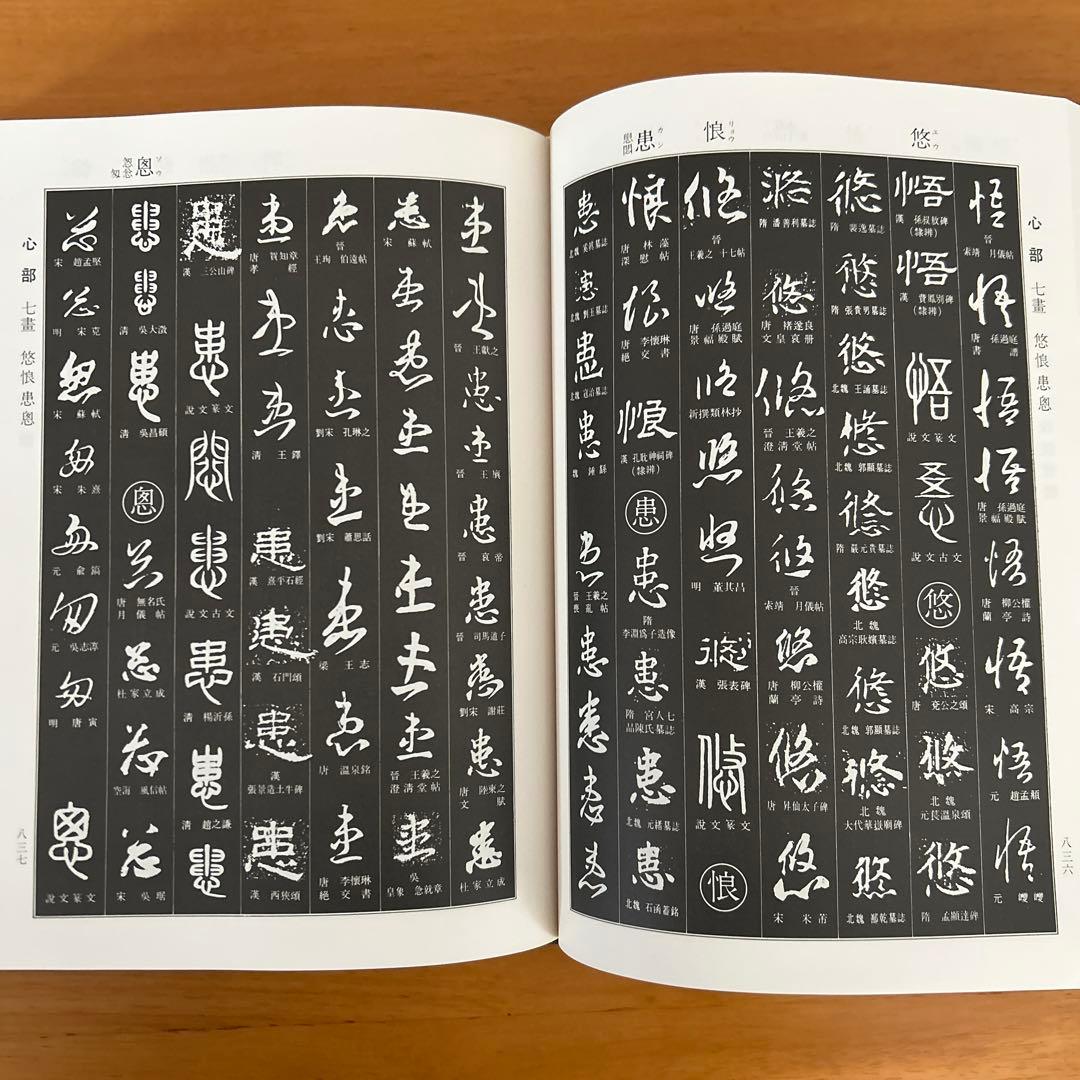 悠
ユウ
悢
リョウ
患
カン
悤
ソウ
心部 七畫 悠悢患悤
八三六
晉
索靖 月儀帖
唐 孫過庭
書譜
唐 孫過庭
景福殿賦
唐 柳公權
蘭亭詩
宋 高宗
元 趙孟頫
漢 孫叔敖碑
(隸辨)
漢 費鳳別碑
(隸辨)
說文篆文
說文古文
悠
唐 兗公之頌
北魏
元萇溫泉頌
隋 孟顯達碑
隋 裴逸墓誌
隋 張貴男墓誌
北魏 王誦墓誌
北魏 郭顯墓誌
隋 嚴元貴墓誌
北魏
高宗耿嬪墓誌
北魏 郭顯墓誌
北魏
大代華嶽廟碑
北魏 鄯乾墓誌
隋 潘善利墓誌
唐 褚遂良
文皇哀册
晉 王羲之
澄清堂帖
晉
索靖 月儀帖
唐 柳公權
蘭亭詩
唐 昇仙太子碑
宋 米芾
晉
王羲之 十七帖
唐 孫過庭
景福殿賦
新撰類林抄
明 董其昌
漢 張表碑
說文篆文
悢
唐 林藻
深慰帖
唐 李懷琳
絕交書
漢 孔耽神祠碑
(隸辨)
患
隋
李淵爲子造像
隋 宮人七
品陳氏墓誌
北魏 元緒墓誌
北魏 石函蓋銘
北魏 寇治墓誌
魏 鍾繇
晉 王羲之
喪亂帖
心部 七畫 悠悢患悤
八三七
晉 王獻之
晉 王廙
晉 哀帝
晉 司馬道子
劉宋 謝莊
唐 陸柬之
文賦
杜家立成
宋 蘇軾
晉 王羲之
澄清堂帖
吳
皇象 急就章
晉
王珣 伯遠帖
劉宋 孔琳之
劉宋 蕭思話
梁 王志
唐 溫泉銘
唐 李懷琳
絕交書
唐 賀知章
孝經
清 王鐸
漢 熹平石經
漢 石門頌
漢
張景造土牛碑
漢 西狹頌
漢 三公山碑
說文篆文
說文古文
清 楊沂孫
清 趙之謙
清 吳大澂
清 吳昌碩
悤
唐 無名氏
月儀帖
杜家立成
空海 風信帖
宋 吳琚
宋 趙孟堅
明 宋克
宋 蘇軾
宋 朱熹
元 俞鎬
元 吳志淳
明 唐寅
說文篆文